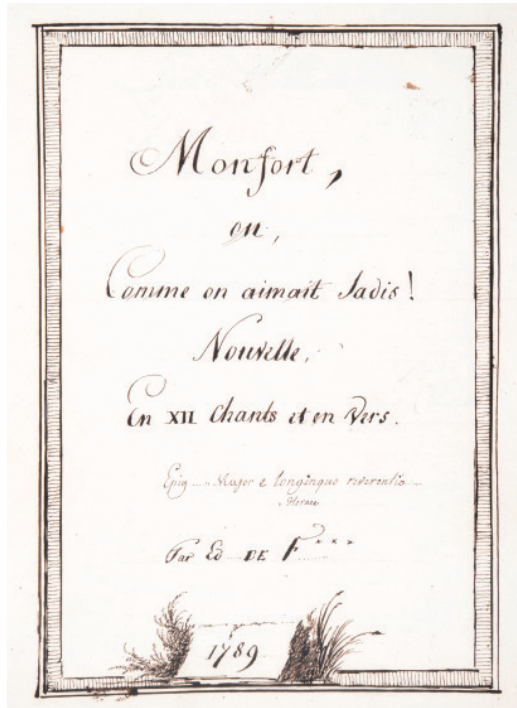 Monfort,
ou,
Comme on aimait Jadis!
Nouvelle,
En XII Chants et en Vers.
Epig ..... Major e longinquo reverentia
Horace
Par Ed DE F***
1789